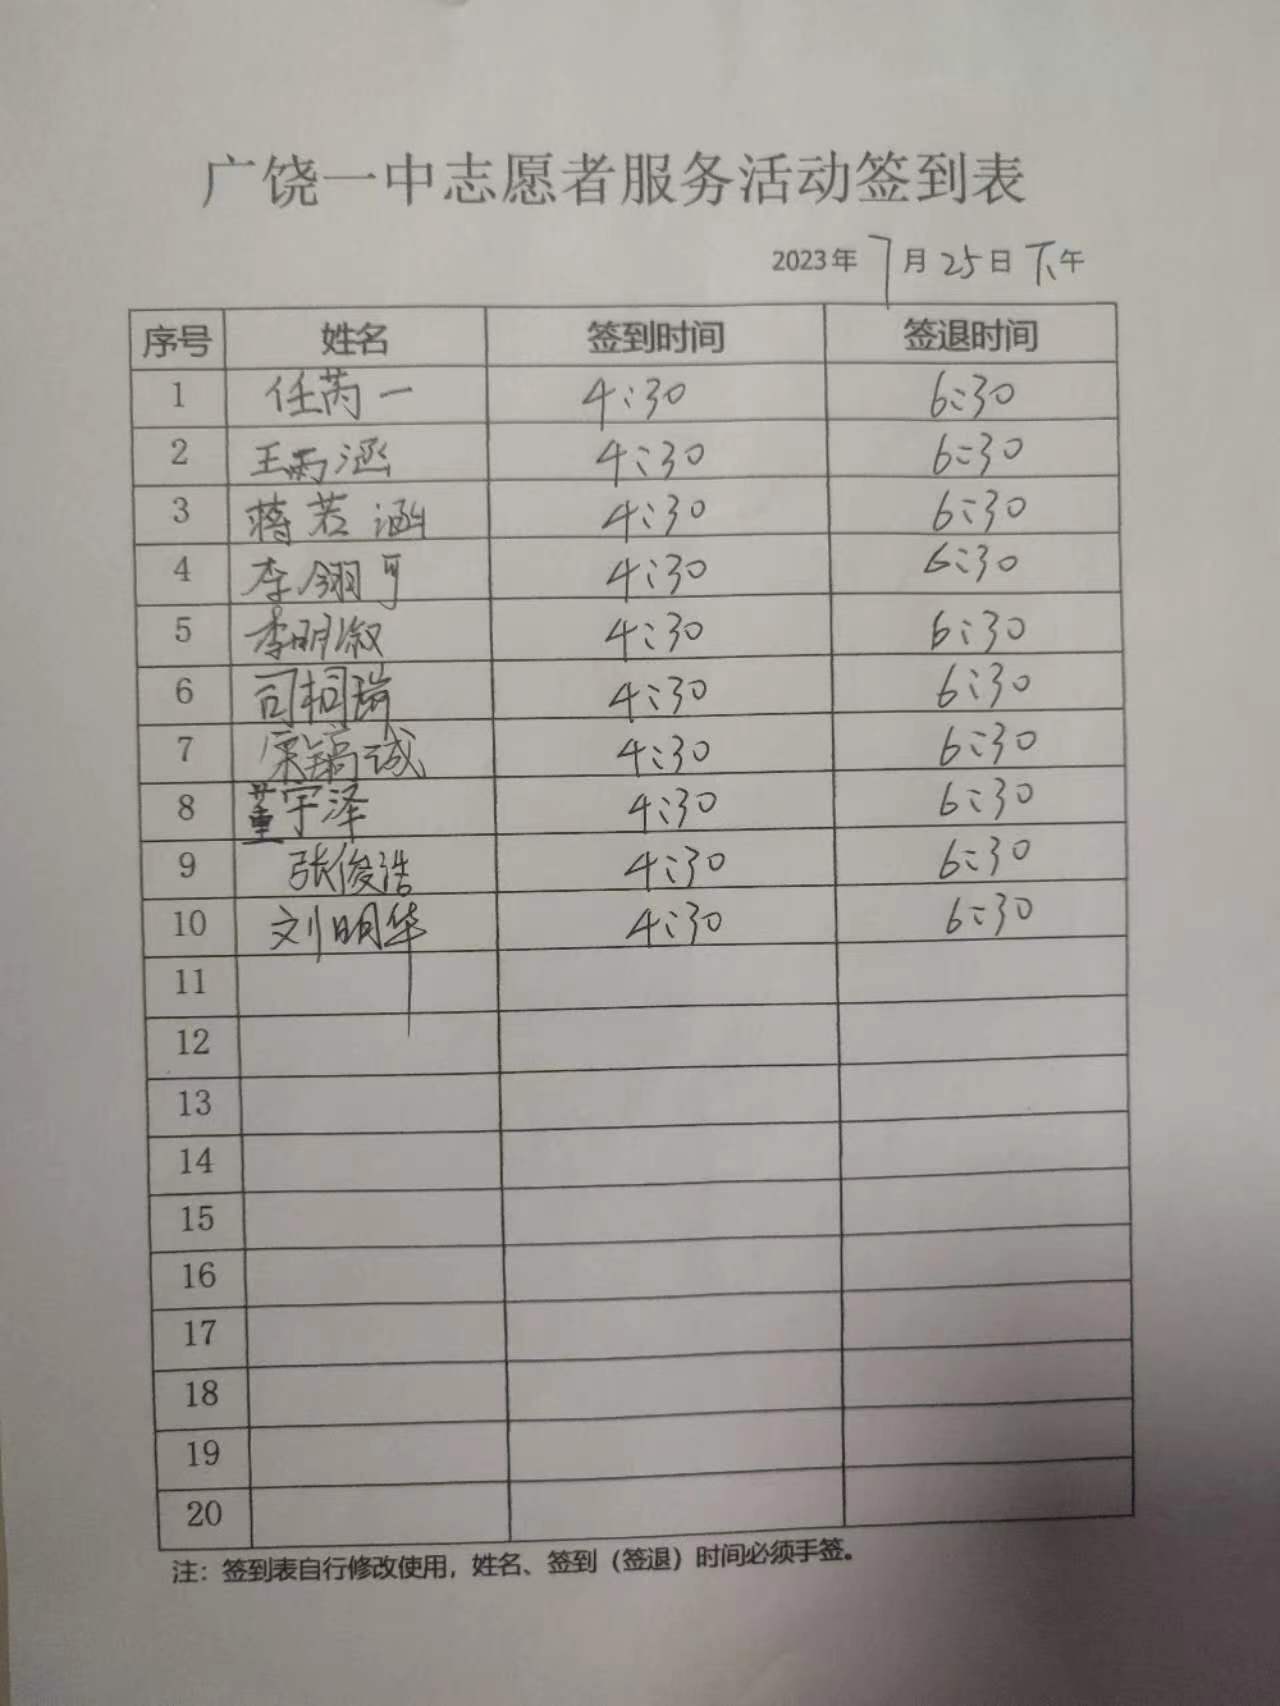 广饶一中志愿者服务活动签到表
2023年 7月 25日 下午
序号 姓名 签到时间 签退时间
1 任芮一 4:30 6:30
2 王雨涵 4:30 6:30
3 蒋若涵 4:30 6:30
4 李翎可 4:30 6:30
5 李明淑 4:30 6:30
6 司桐瑞 4:30 6:30
7 宋镐诚 4:30 6:30
8 董宇泽 4:30 6:30
9 张俊浩 4:30 6:30
10 刘明华 4:30 6:30
11
12
13
14
15
16
17
18
19
20
注：签到表自行修改使用，姓名、签到（签退）时间必须手签。